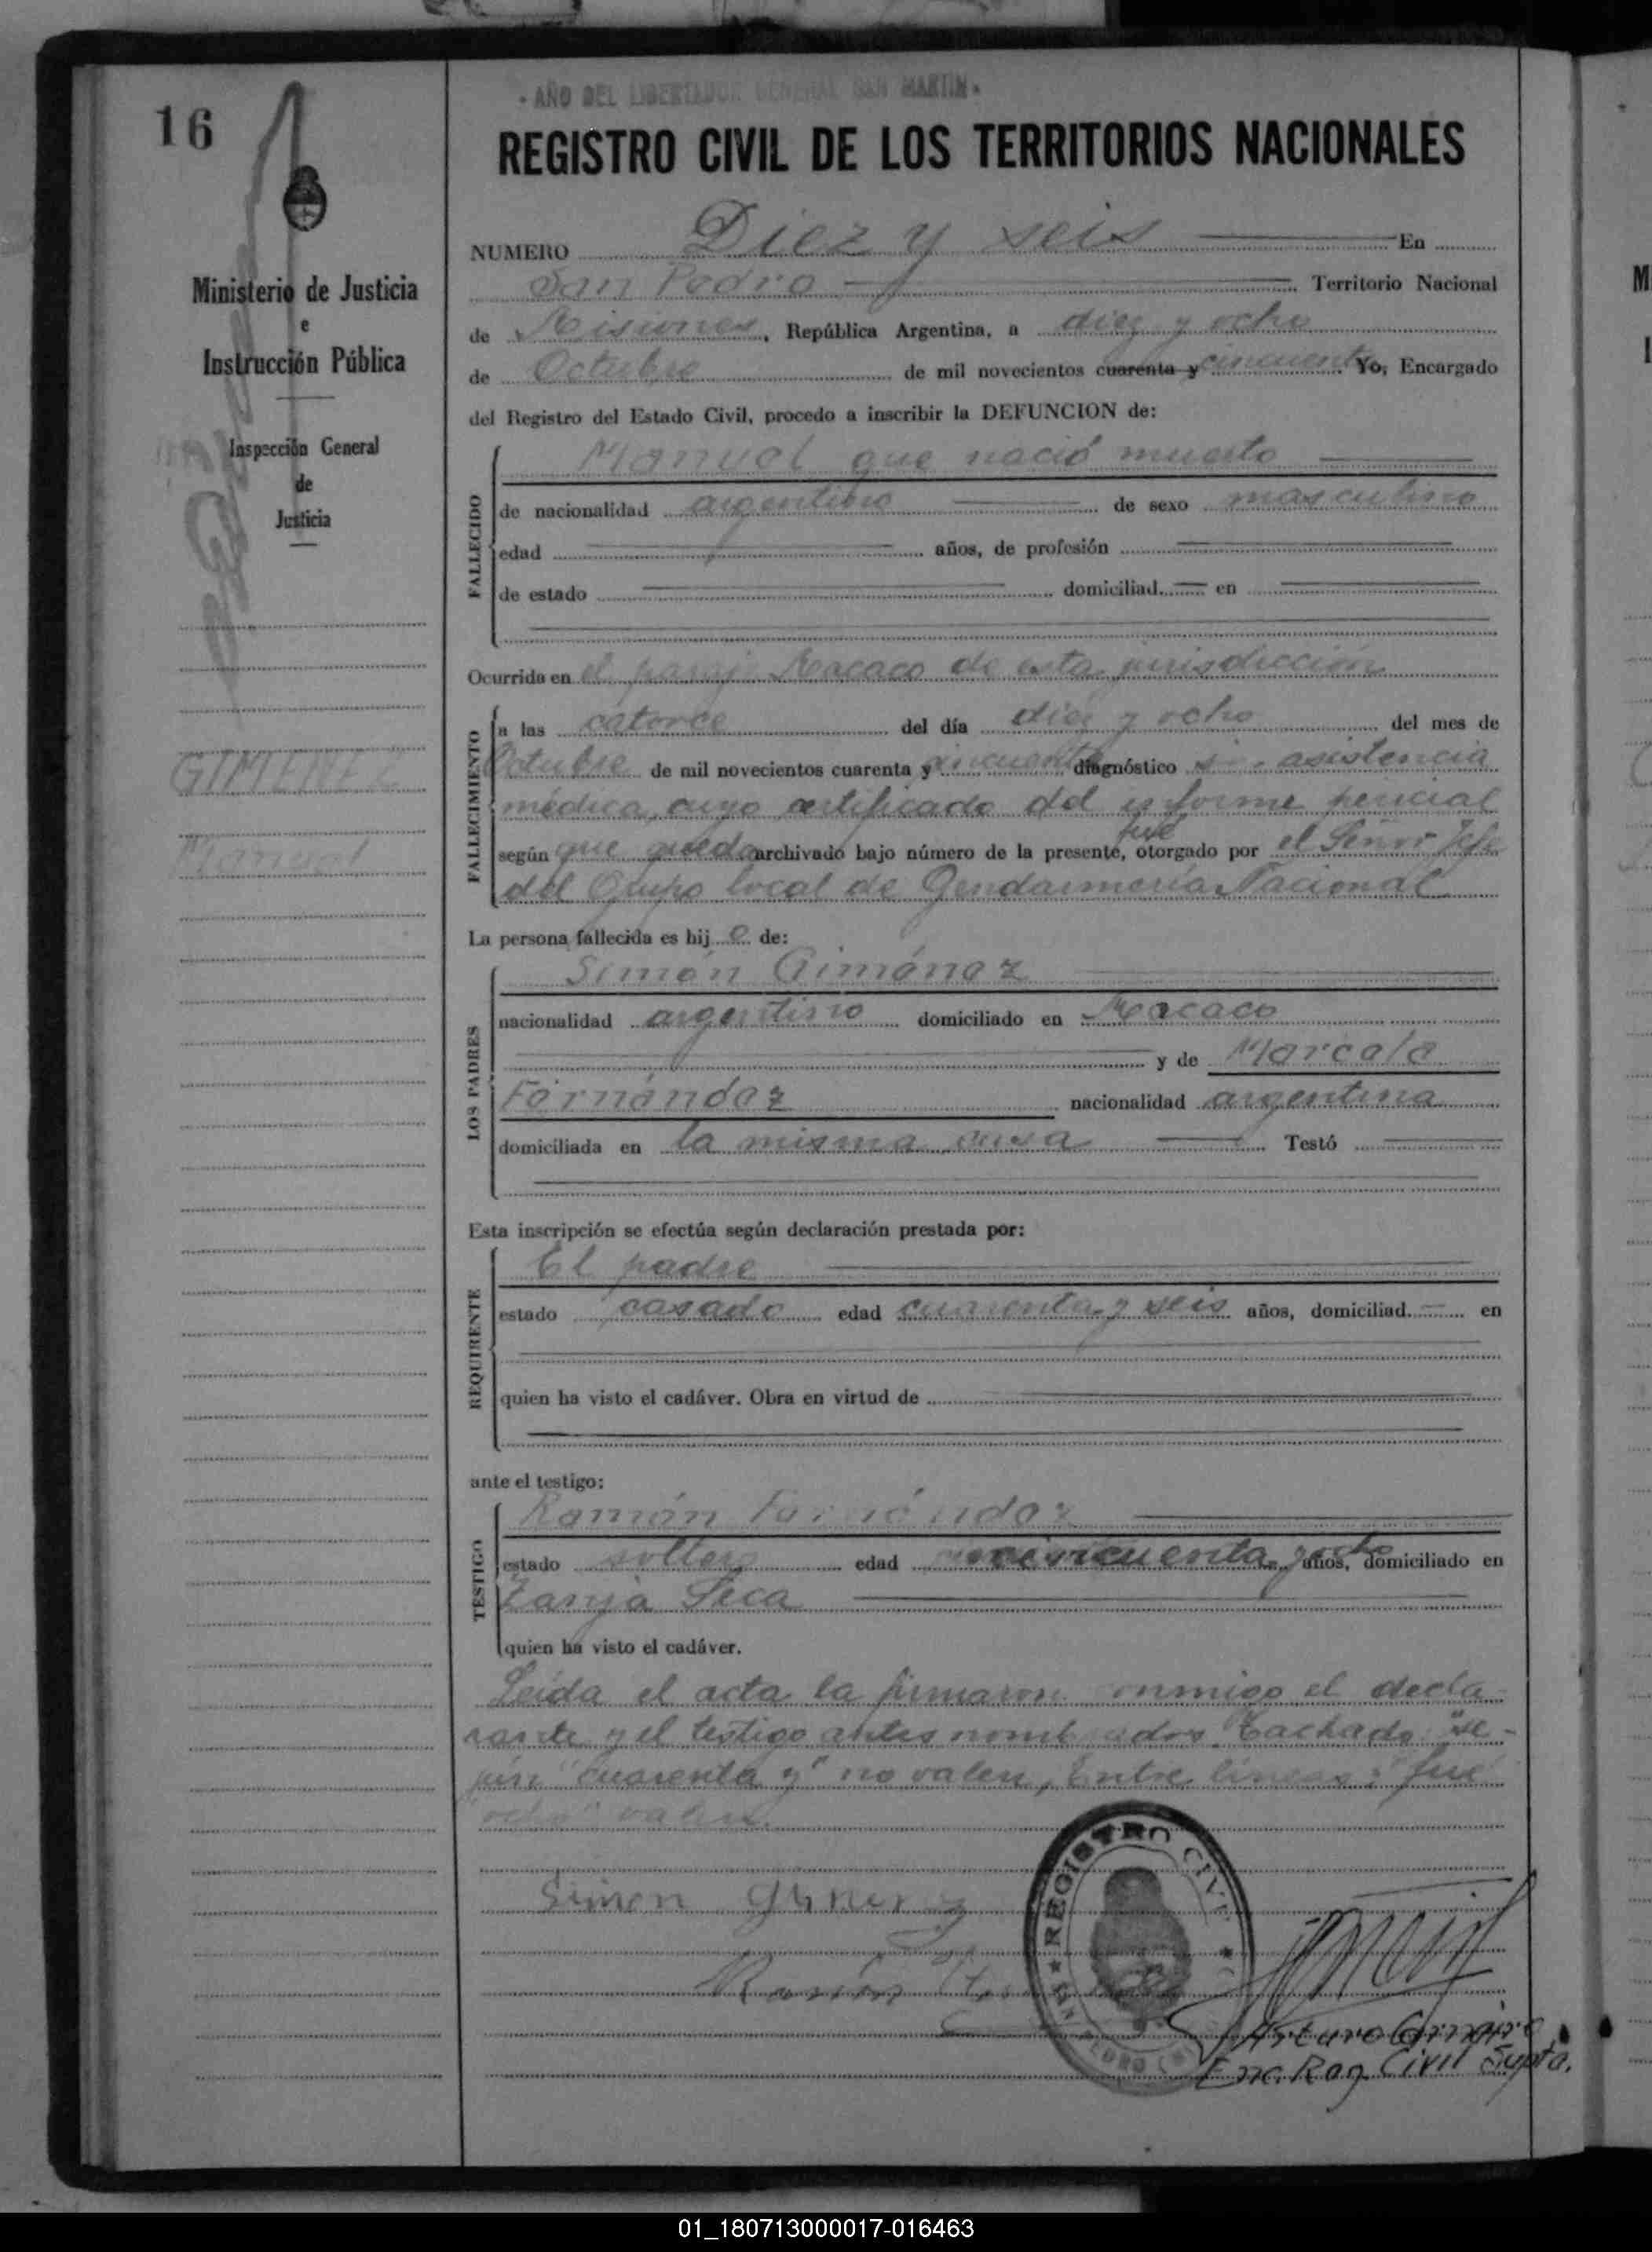 16
· AÑO DEL LIBERTADOR GENERAL SAN MARTIN ·
REGISTRO CIVIL DE LOS TERRITORIOS NACIONALES
Ministerio de Justicia
e
Instrucción Pública
Inspección General
de
Justicia
GIMENEZ
Manuel
NUMERO Diez y seis En
San Pedro Territorio Nacional
de Misiones, República Argentina, a diez y ocho
de Octubre de mil novecientos cuarenta y cincuenta Yo, Encargado
del Registro del Estado Civil, procedo a inscribir la DEFUNCION de:
FALLECIDO
Manuel que nació muerto
de nacionalidad argentino de sexo masculino
edad años, de profesión
de estado domiciliad en
Ocurrida en el paraje Macaco de esta jurisdicción
FALLECIMIENTO
a las catorce del día diez y ocho del mes de
Octubre de mil novecientos cuarenta y cincuenta diagnóstico sin asistencia
médica, cuyo certificado del informe pericial
fué
según que queda archivado bajo número de la presente, otorgado por el Señor Jefe
del Grupo local de Gendarmería Nacional
La persona fallecida es hij o de:
LOS PADRES
Simón Giménez
nacionalidad argentino domiciliado en Macaco
y de Marcela
Fernández nacionalidad argentina
domiciliada en la misma casa Testó
Esta inscripción se efectúa según declaración prestada por:
REQUIRENTE
El padre
estado casado edad cuarenta y seis años, domiciliad en
quien ha visto el cadáver. Obra en virtud de
ante el testigo:
TESTIGO
Ramón Fernández
estado soltero edad cincuenta y ocho años, domiciliado en
Zanja Seca
quien ha visto el cadáver.
Leída el acta la firmaron conmigo el decla-
rante y el testigo antes nombrados. Tachado: "se-
gún" "cuarenta y" no valen, Entre líneas: "fué
"ocho" valen.
Simon Gimenez
Ramón
REGISTRO CIVIL
SAN PEDRO
Arturo
Enc. Reg. Civil Supte.
01_180713000017-016463